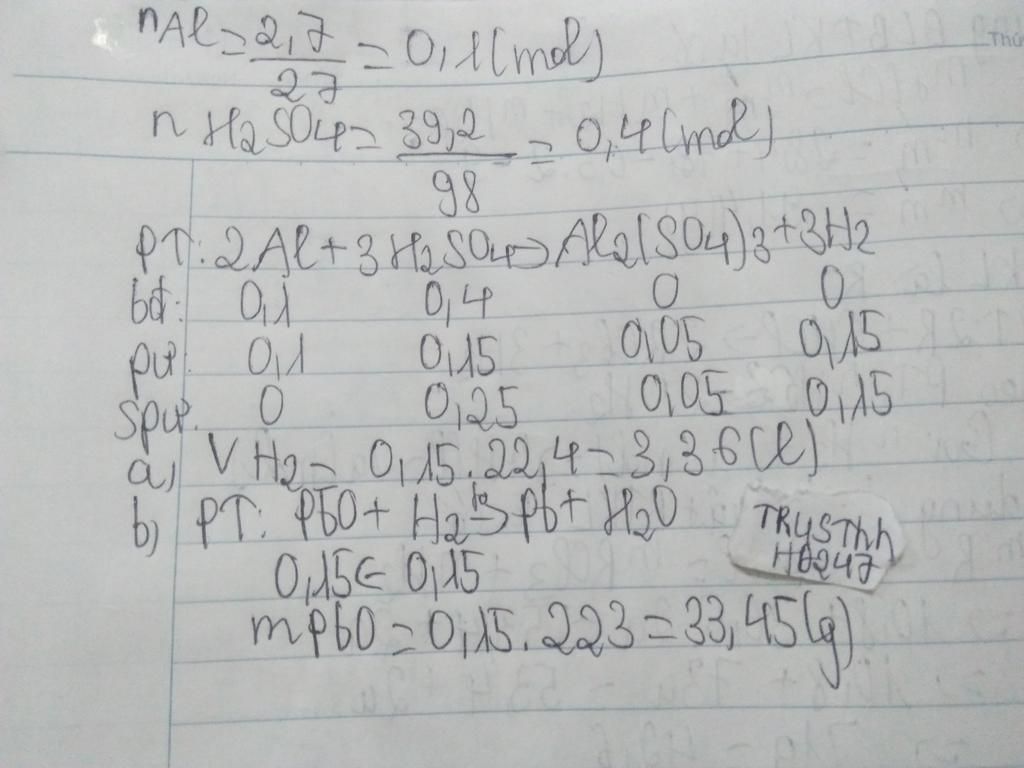 nAl = 2,7/27 = 0,1 (mol)
n H2SO4 = 39,2/98 = 0,4 (mol)
PT: 2Al + 3H2SO4 → Al2(SO4)3 + 3H2
bđ: 0,1 0,4 0 0
pư: 0,1 0,15 0,05 0,15
spư: 0 0,25 0,05 0,15
a, VH2 = 0,15.22,4 = 3,36 (l)
b, PT: PbO + H2 →(to) Pb + H2O
0,15 ← 0,15
mPbO = 0,15.223 = 33,45 (g)
TRYSThh
HD247